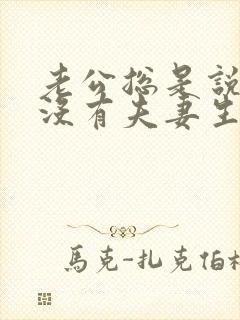 老公总是說
没有夫妻生
馬克-扎克伯格